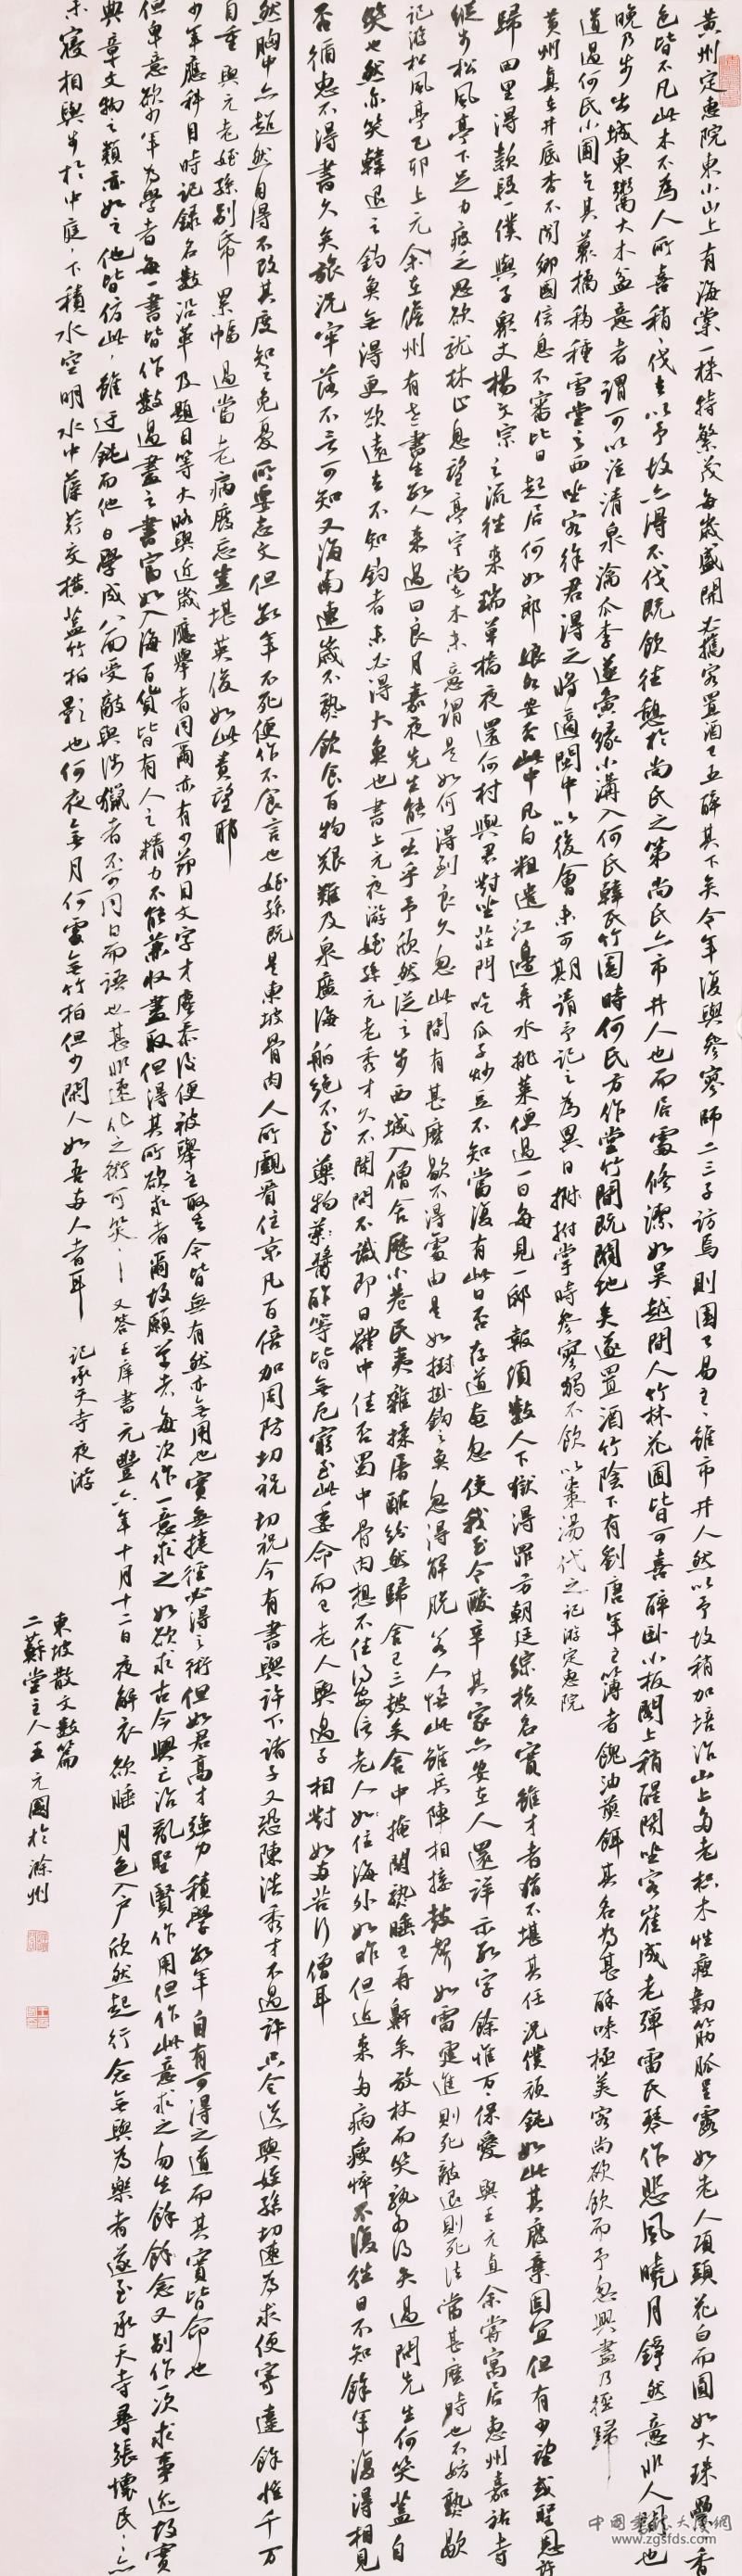 黄州定惠院東小山上有海棠一株特繁茂每歲盛開必攜客置酒已五醉其下矣今年復與參寥師二三子訪焉則園已易主主雖市井人然以予故稍加培治山上多老枳木性瘦韌筋脈呈露如老人項頸花白而圓如大珠纍纍香
色皆不凡此木不為人所喜稍稍伐去以予故亦得不伐既飲往憩於尚氏之第尚氏亦市井人也而居處修潔如吳越間人竹林花圃皆可喜醉臥小板閣上稍醒聞坐客崔成老彈雷氏琴作悲風曉月錚然意非人間也
晚乃步出城東鬻大木盆意者謂可以注清泉瀹瓜李遂夤緣小溝入何氏韓氏竹園時何氏方作堂竹間既闢地矣遂置酒竹陰下有劉唐年主簿者餽油煎餌其名為甚酥味極美客尚欲飲而予忽興盡乃徑歸
道過何氏小圃乞其叢橘移種雪堂之西坐客徐君得之將適閩中以後會未可期請予記之為異日拊掌時參寥獨不飲以棗湯代之記游定惠院
黄州真在井底杳不聞鄉國信息不審比日起居何如郎娘各安否此中凡百粗遣江邊弄水挑菜便過一日每見一邸報須數人下獄得罪方朝廷綜核名實雖才者猶不堪其任況僕頑鈍如此其廢棄固宜但有少望或聖恩許
歸田里得款段一僕與子衆丈楊文宗之流往來瑞草橋夜還何村與君對坐莊門吃瓜子炒豆不知當復有此日否存道奄忽使我至今酸辛其家亦安在人還詳示數字餘惟萬萬保愛與王元直余嘗寓居惠州嘉祐寺
縱步松風亭下足力疲乏思欲就林止息望亭宇尚在木末意謂是如何得到良久忽曰此間有甚麼歇不得處由是如掛鉤之魚忽得解脫若人悟此雖兵陣相接鼓聲如雷霆進則死敵退則死法當甚麼時也不妨熟歇
記游松風亭己卯上元余在儋州有老書生數人來過曰良月嘉夜先生能一出乎予欣然從之步西城入僧舍歷小巷民夷雜揉屠酤紛然歸舍已三鼓矣舍中掩關熟睡已再鼾矣放杖而笑孰為得失過問先生何笑蓋自
笑也然亦笑韓退之釣魚無得更欲遠去不知釣者未必得大魚也書上元夜游姪孫元老秀才久不聞問不識即日體中佳否蜀中骨肉想不住得安訊老人如住海外如昨但近來多病瘦悴不復往日不知餘年復得相見
否循惠不得書久矣旅況牢落不言可知又海南連歲不熟飲食百物艱難及泉廣海舶絕不至藥物葉醬酢等皆無厄窮至此委命而已老人與過子相對如兩苦行僧耳
然胸中亦超然自得不改其度知之免憂所要志文但數年不死便作不食言也姪孫既是東坡骨肉人所覷看住京凡百倍加周防切祝切祝今有書與許下諸子又恐陳浩秀才不過許只令送與姪孫切速為求便寄達餘惟千萬
自重與元老姪孫别紙累幅過當老病廢忘豈堪英俊如此責望耶
少年應科目時記録名數沿革及題目等大略與近歲應舉者同爾亦有少節目文字才塵忝後便被舉主取去今皆無有然亦無用也實無捷徑必得之術但如君高才強力積學數年自有可得之道而其實皆命也
但卑意欲少年為學者每一書皆作數過盡之書富如入海百貨皆有人之精力不能兼收盡取但得其所欲求者爾故願學者每次作一意求之如欲求古今興亡治亂聖賢作用但作此意求之勿生餘餘念又别作一次求事迹故實
典章文物之類亦如之他皆仿此雖迂鈍而他日學成八面受敵與涉獵者不可同日而語也甚非速化之術可笑可笑又答王庠書元豐六年十月十二日夜解衣欲睡月色入户欣然起行念無與為樂者遂至承天寺尋張懷民民亦
未寢相與步於中庭庭下積水空明水中藻荇交橫蓋竹柏影也何夜無月何處無竹柏但少閒人如吾兩人者耳 記承天寺夜游
東坡散文數篇
二蘇堂主人王元國於滁州
中國書法大廈網
www.zgsfds.com